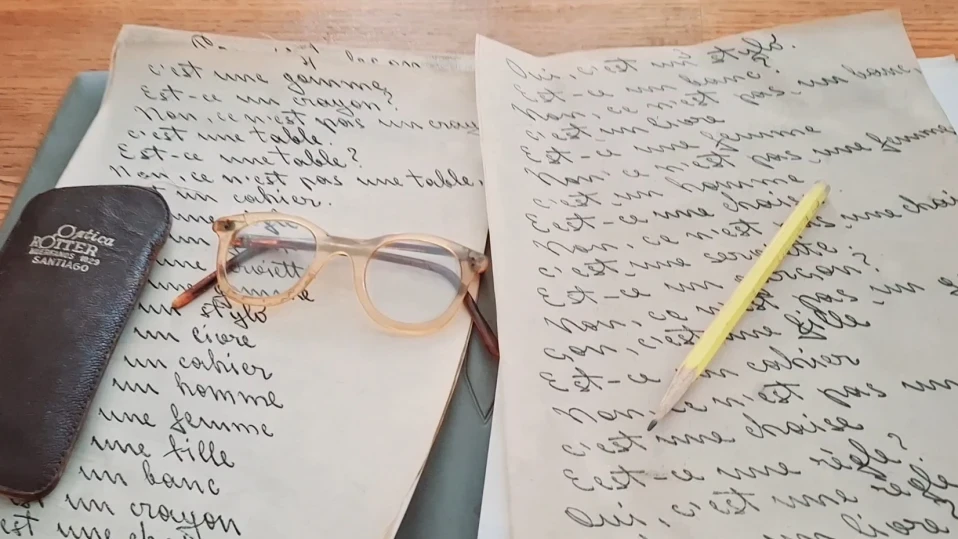 c'est une gomme,
Est-ce un crayon?
Non, ce n'est pas un cray
c'est une table.
Est-ce une table?
Non, ce n'est pas une table.
un cahier.
une
une
une
un stylo
un livre
un cahier
un homme
une femme
une fille
un banc
un crayon
est une
Optica
ROTTER
HUERFANOS 1029
SANTIAGO
Oui, c'est un stylo.
Est-ce un banc?
Non, ce n'est pas un banc.
c'est un livre
Est-ce une femme
Non, ce n'est pas une femme
c'est un homme
Est-ce une chaise
Non, ce n'est une chai
c'est une serviette
Est-ce un garçon?
Non, ce n'est pas un g
c'est une fille
Est-ce un cahier
Non, ce n'est pas un
c'est une chaise
Est-ce une règle?
Oui, c'est une règle
livre?